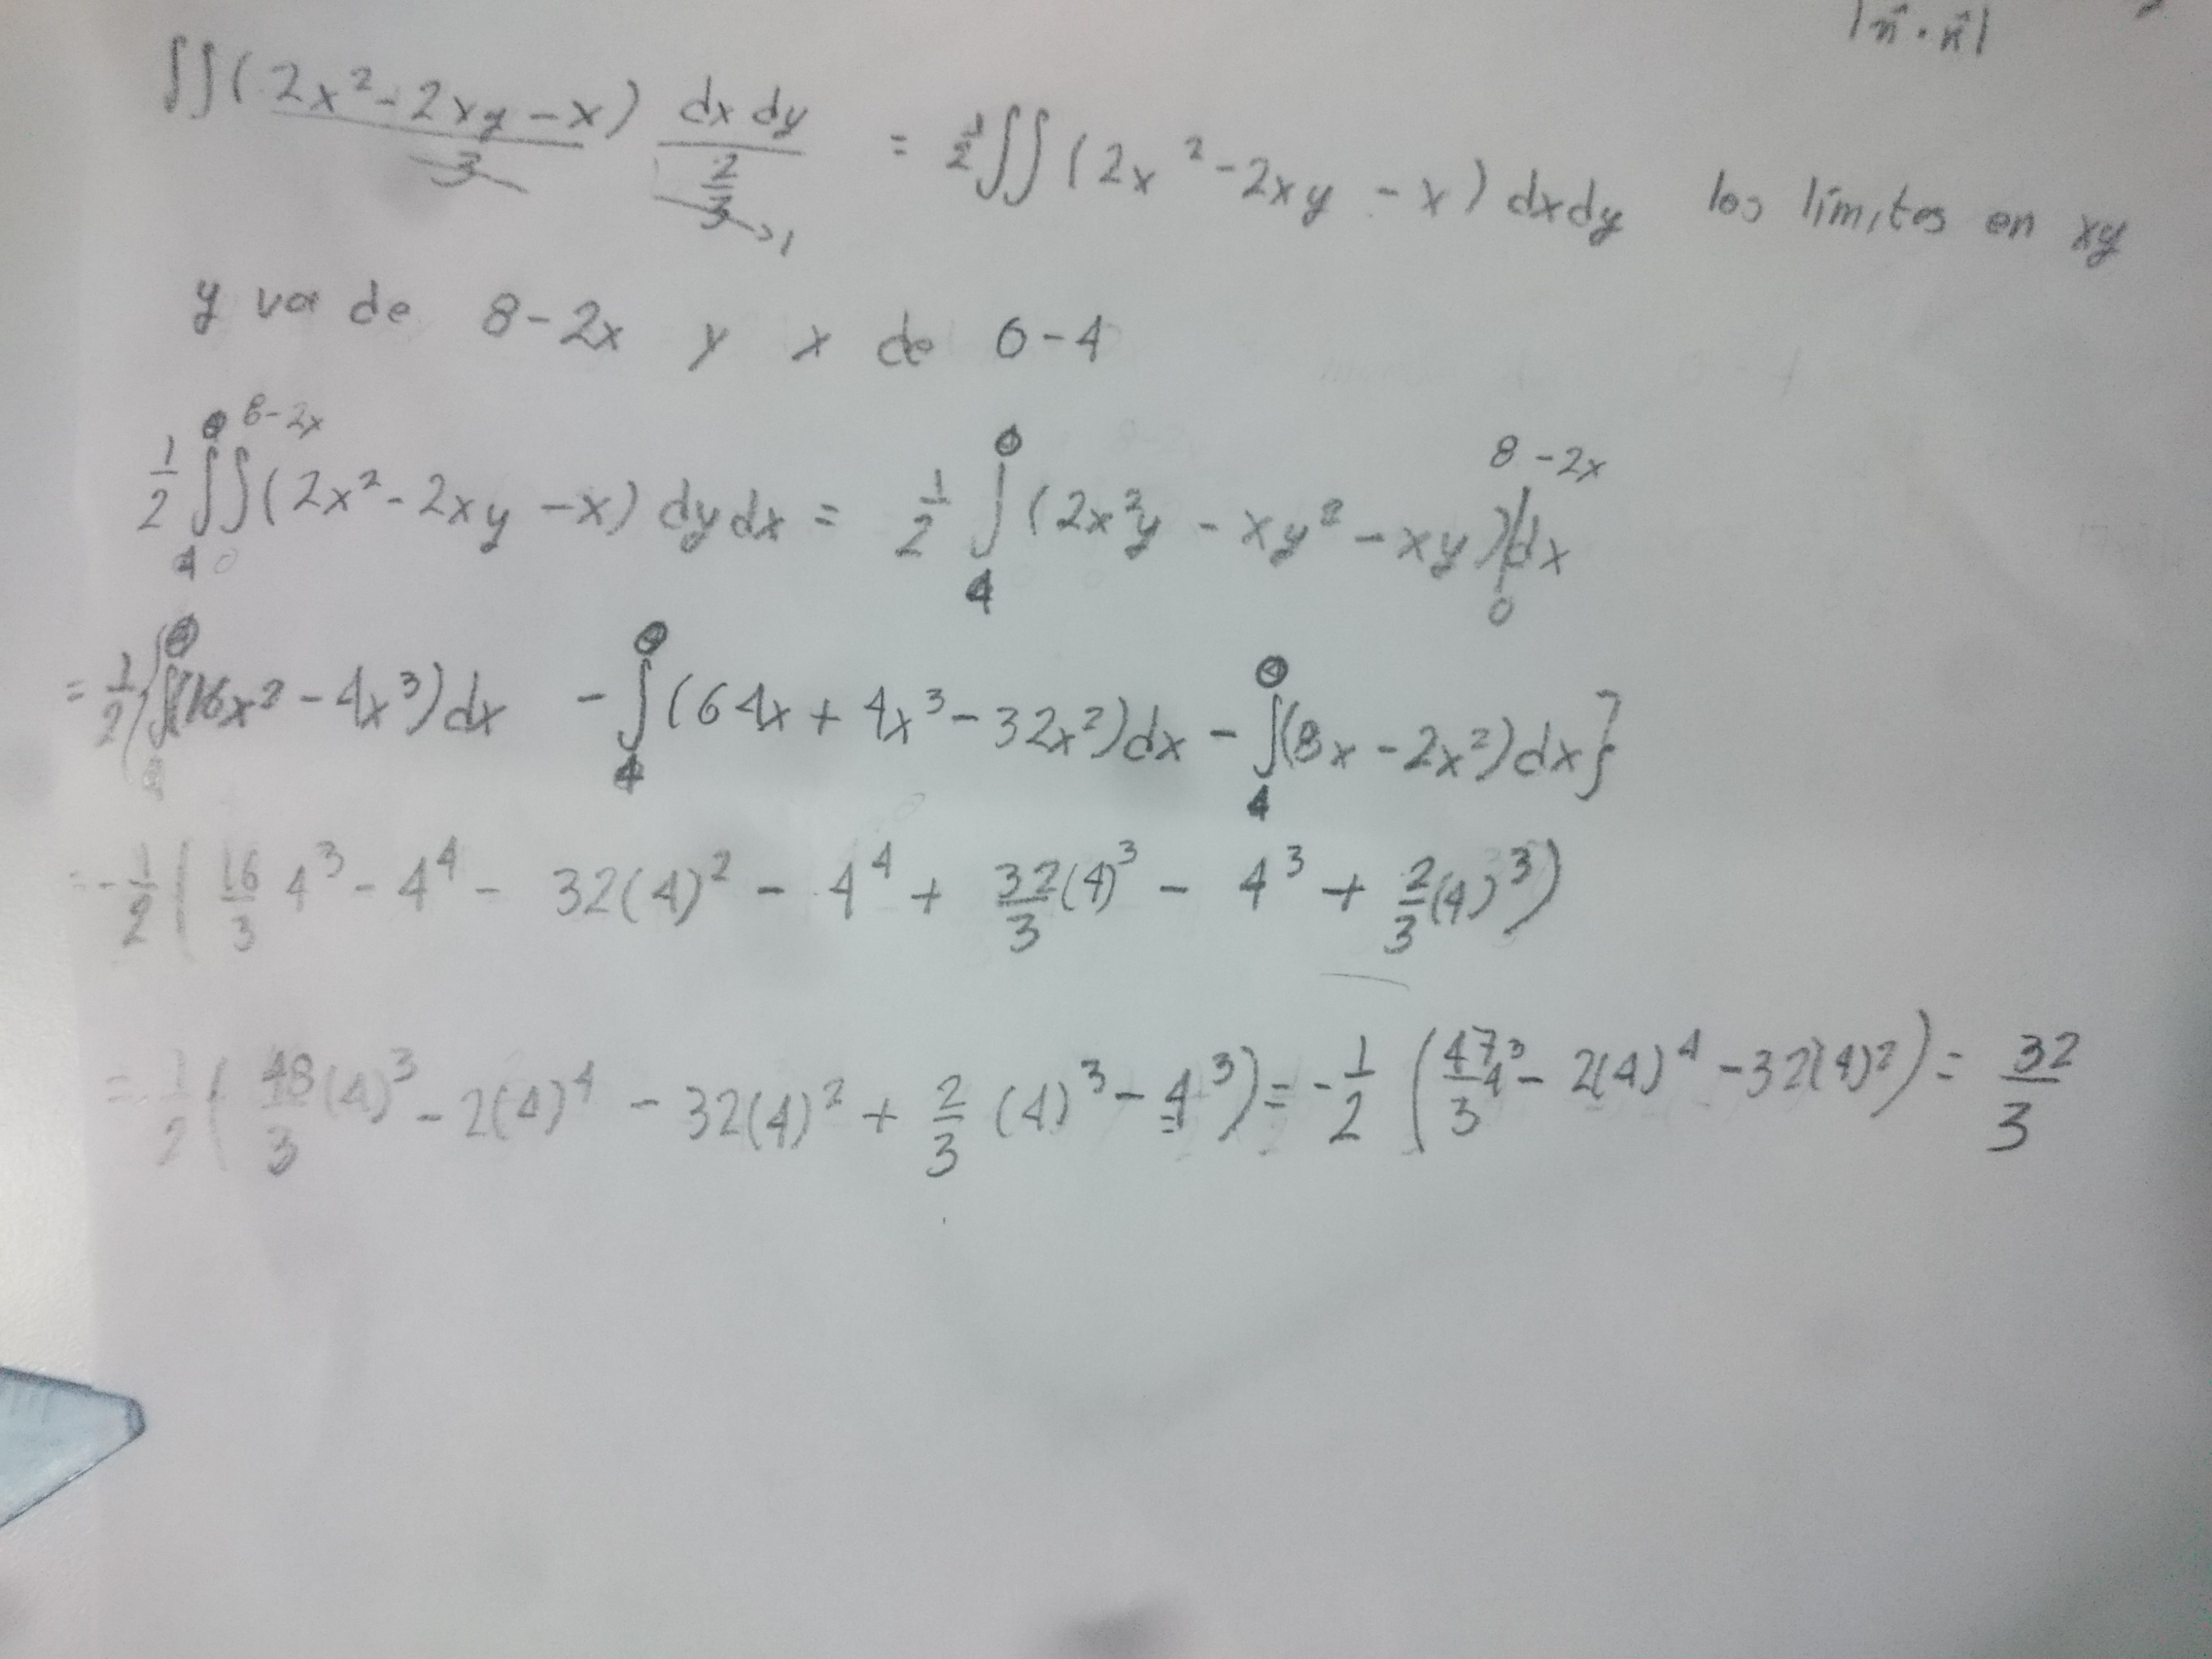 |n̄·k̄|
∫∫ (2x² - 2xy - x)/3 dxdy/(2/3) = 1/2 ∫∫ (2x² - 2xy - x) dxdy los limites en xy
y va de 8-2x y x de 0-4
1/2 ∫₄⁰ ∫₀^(8-2x) (2x² - 2xy - x) dydx = 1/2 ∫₄⁰ (2x²y - xy² - xy)|₀^(8-2x) dx
= 1/2 { ∫₄⁰ (16x² - 4x³)dx - ∫₄⁰ (64x + 4x³ - 32x²)dx - ∫₄⁰ (8x - 2x²)dx }
= -1/2 ( 16/3 4³ - 4⁴ - 32(4)² - 4⁴ + 32/3 (4)³ - 4³ + 2/3 (4)³ )
= -1/2 ( 48/3 (4)³ - 2(4)⁴ - 32(4)² + 2/3 (4)³ - 4³ ) = -1/2 ( 47/3 4³ - 2(4)⁴ - 32(4)² ) = 32/3